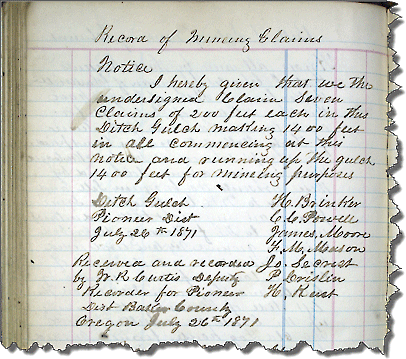 Record of Mineing Claims
Notice
I hereby given that we the
undersigned Claim Seven
Claims of 200 feet each in this
Ditch Gulch making 1400 feet
in all commencing at this
notice and running up the gulch
1400 feet for mineing purposes
Ditch Gulch H. Brinker
Pioneer Dist C. C. Powell
July 26th 1871 James Moore
F. M. Mason
Received and recorded Jo. Secrist
by W. R. Curtis Deputy P. Drislin
Recorder for Pioneer H. Kent
Dist Baker County
Oregon July 26th 1871